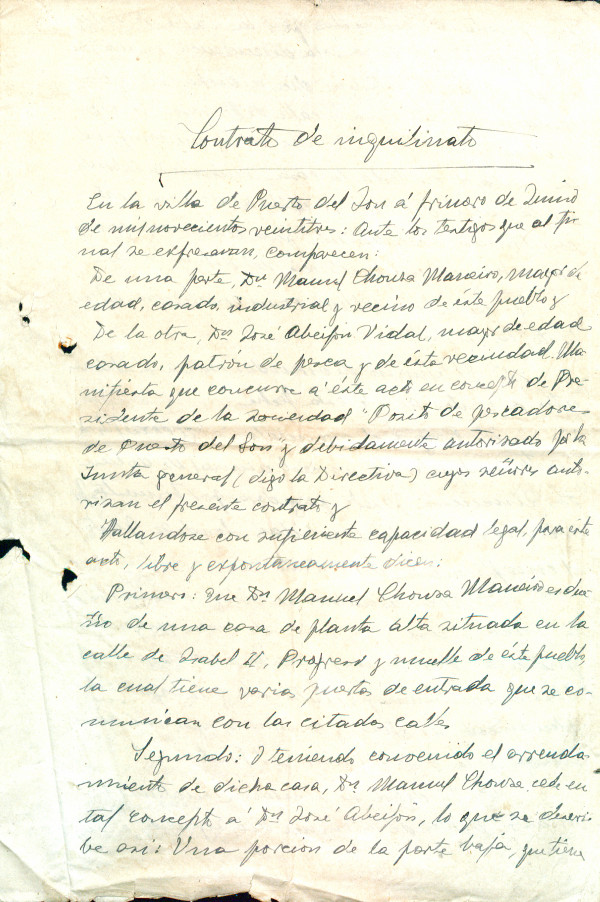 Contrato de inquilinato
En la villa de Puerto del Son á primero de Junio
de mil novecientos veintitres: Ante los testigos que al fi
nal se expresaran, comparecen:
De una parte, Dn Manuel Chouza Maneiro, mayor de
edad, casado, industrial y vecino de éste pueblo y
De la otra, Dn José Abeijón Vidal, mayor de edad
casado, patrón de pesca y de ésta vecindad. Ma
nifiesta que concurre á éste acto en concepto de Pre-
sidente de la sociedad "Posito de pescadores
de Puerto del Son" y debidamente autorizado por la
Junta general (digo la Directiva) cuyos señores auto-
rizan el presente contrato y
Hallandose con suficiente capacidad legal, para este
acto, libre y expontaneamente dicen:
Primero: Que Dn Manuel Chouza Maneiro es due
ño de una casa de planta alta situada en la
calle de Isabel II, Progreso y muelle de éste pueblo,
la cual tiene varias puertas de entrada que se co-
munican con las citadas calles
Segundo: Y teniendo convenido el arrenda
miento de dicha casa, Dn Manuel Chouza cede en
tal concepto á Dn José Abeijón, lo que se descri
be asi: Una porcion de la parte vaja, que tiene